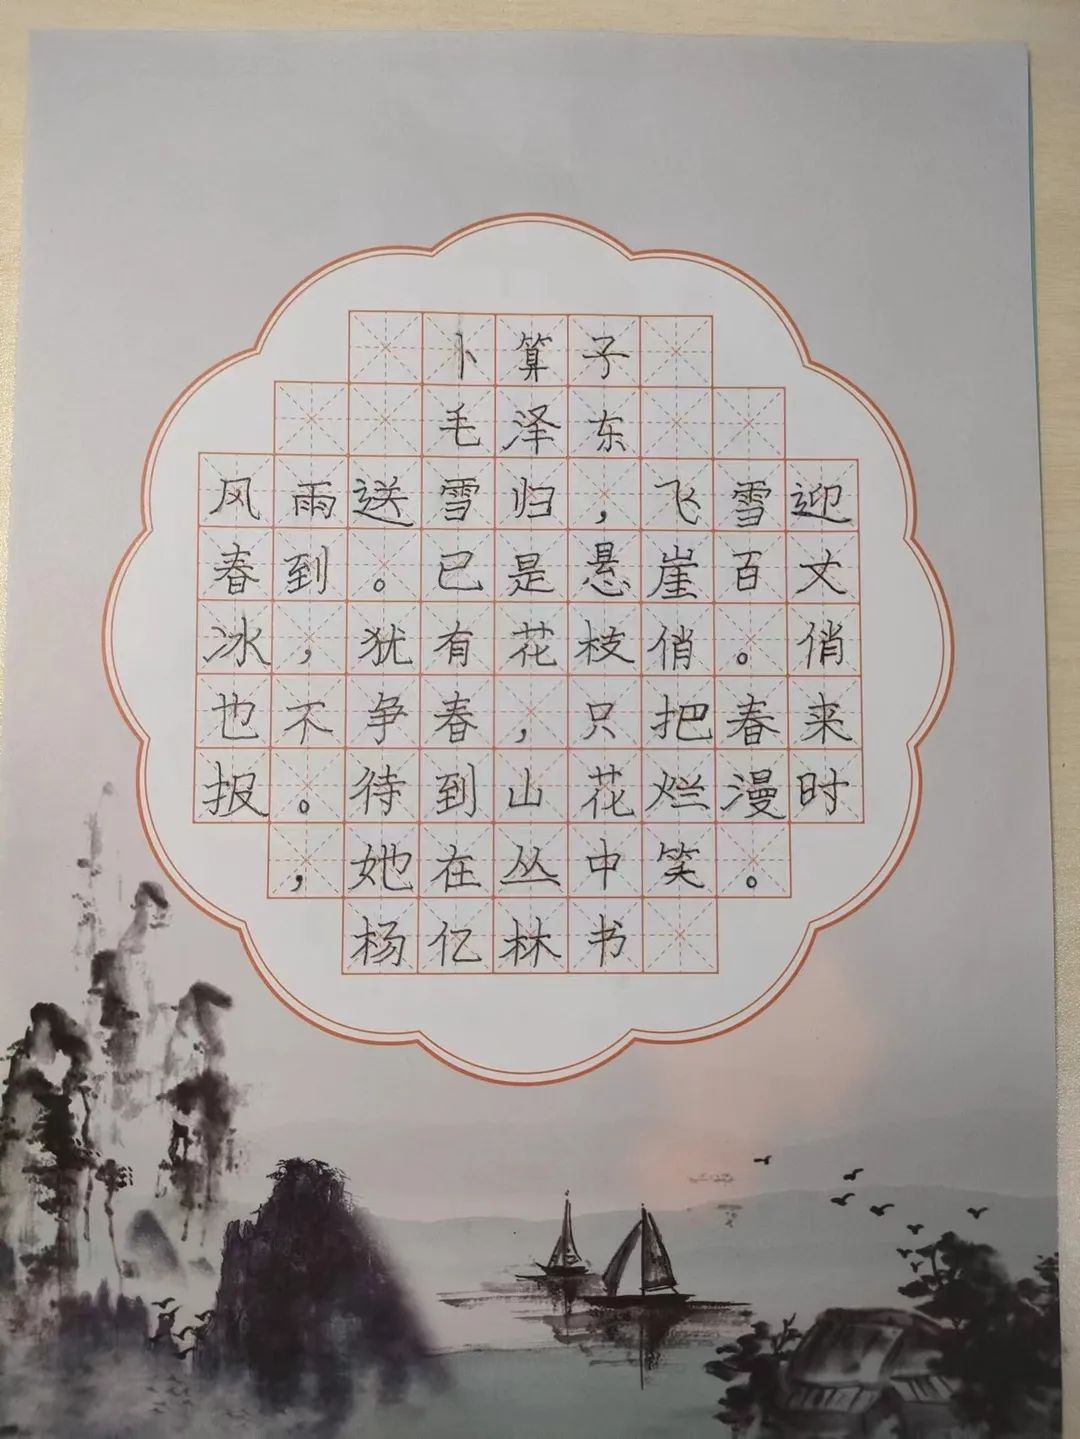 卜算子
毛泽东
风雨送雪归，飞雪迎
春到。已是悬崖百丈
冰，犹有花枝俏。俏
也不争春，只把春来
报。待到山花烂漫时
，她在丛中笑。
杨亿林书